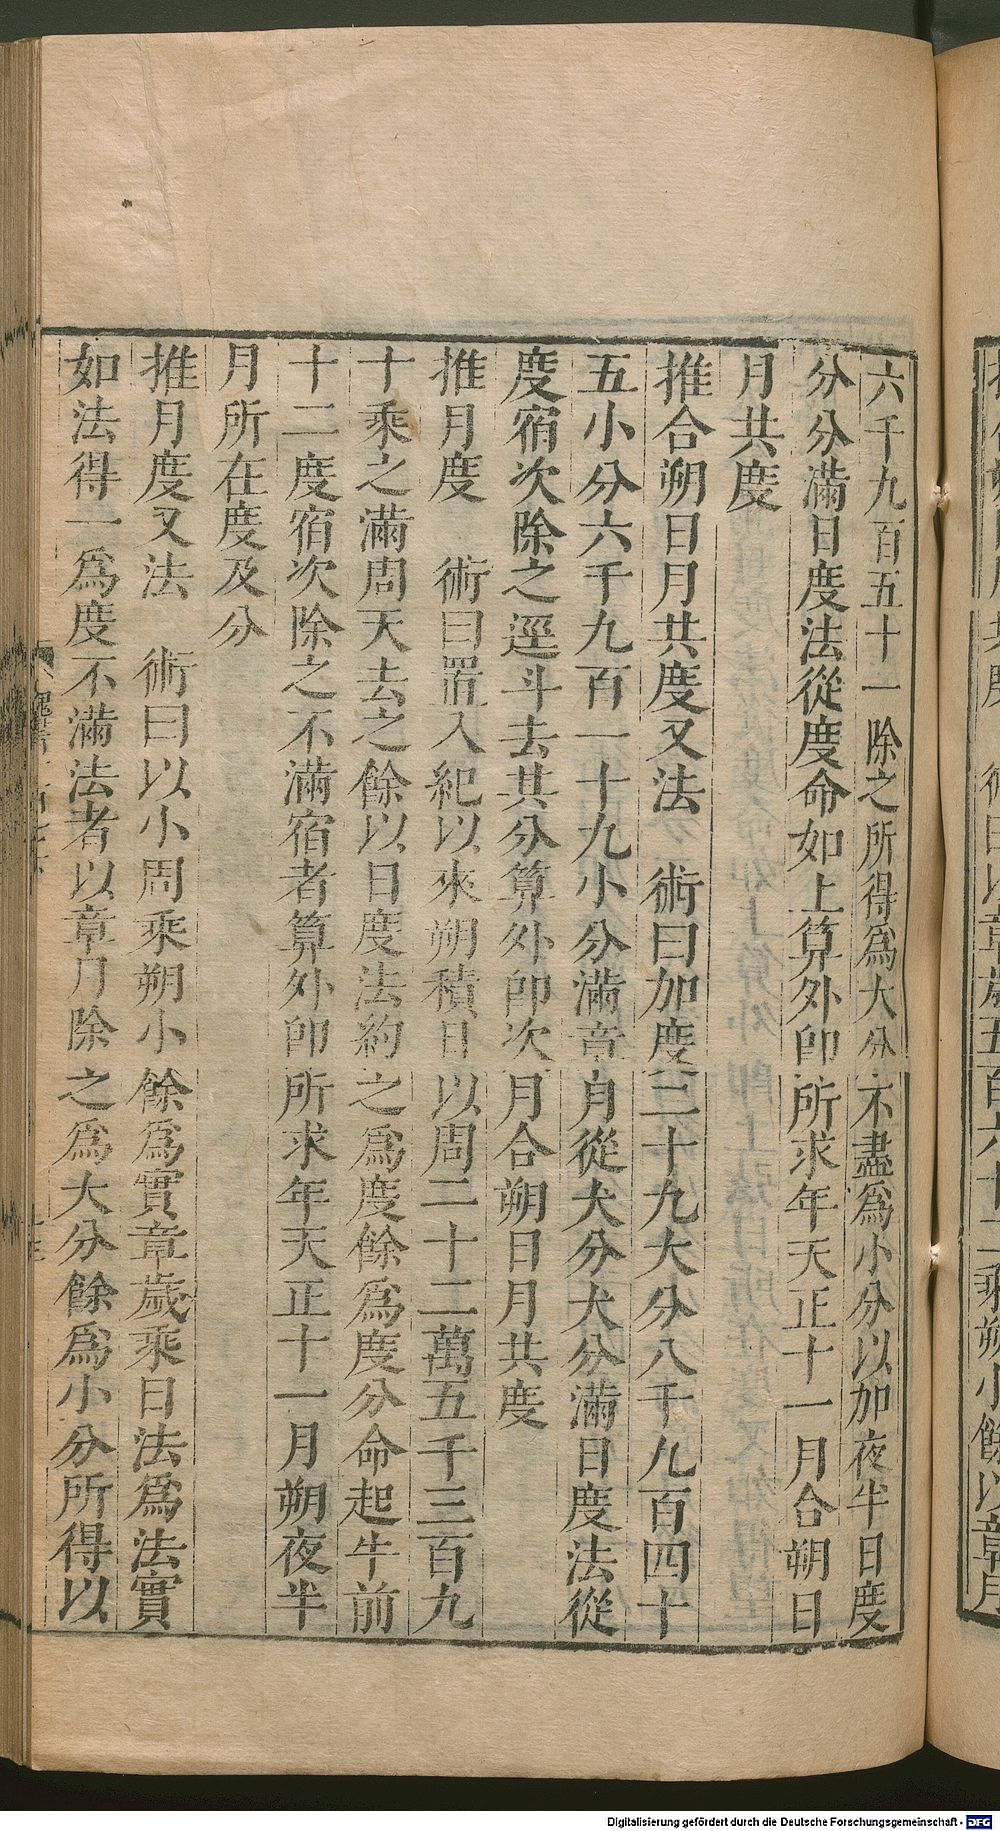 六千九百五十一除之所得爲大分不盡爲小分以加夜半日度
分分滿日度法從度命如上算外卽所求年天正十一月合朔日
月共度
推合朔日月共度又法　術曰加度二十九大分八千九百四十
五小分六千九百一十九小分滿章月從大分大分滿日度法從
度宿次除之逕斗去其分算外卽次月合朔日月共度
推月度　術曰置入紀以來朔積日以周二十二萬五千三百九
十乘之滿周天去之餘以日度法約之爲度餘爲度分命起牛前
十二度宿次除之不滿宿者算外卽所求年天正十一月朔夜半
月所在度及分
推月度又法　術曰以小周乘朔小餘爲實章歲乘日法爲法實
如法得一爲度不滿法者以章月除之爲大分餘爲小分所得以
Digitalisierung gefördert durch die Deutsche Forschungsgemeinschaft - DFG